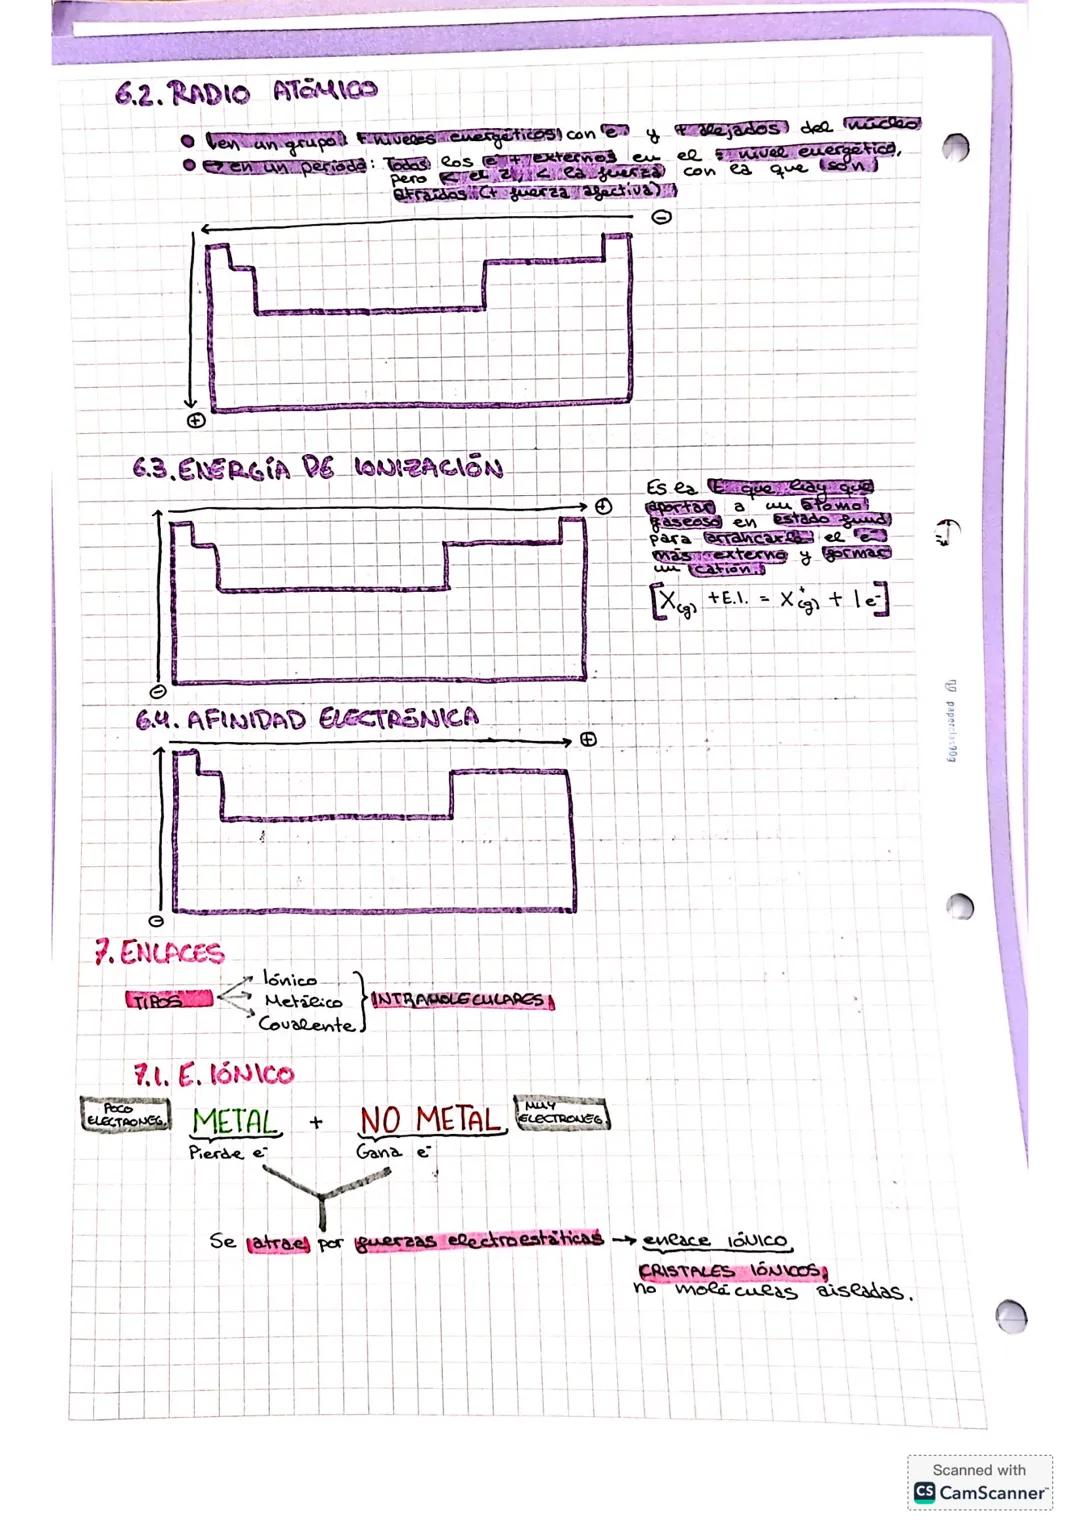 6.2. RADIO ATÓMICO
↓ en un grupo: + niveles energéticos con e⁻ y + alejados del núcleo
→ en un periodo: Todos los e⁻ + externos en el = nivel energético,
pero < el Z, < la fuerza con la que son
atraídos. (+ fuerza afectiva)
⊖
⊕
6.3. ENERGÍA DE IONIZACIÓN
⊕
Es la E que hay que
aportar a un átomo
gaseoso en estado fund
para arrancarle el e⁻
más externo y formar
un catión.
[X(g) + E.I. = X⁺(g) + 1e⁻]
⊖
6.4. AFINIDAD ELECTRÓNICA
⊕
⊖
7. ENLACES
TIPOS
Iónico
Metálico
Covalente
INTRAMOLECULARES
7.1. E. IÓNICO
POCO
ELECTRONEG.
METAL + NO METAL
MUY
ELECTRONEG.
Pierde e⁻ Gana e⁻
Se atrae por fuerzas electroestáticas → enlace iónico
CRISTALES IÓNICOS,
no moléculas aisladas.
Scanned with
CS CamScanner